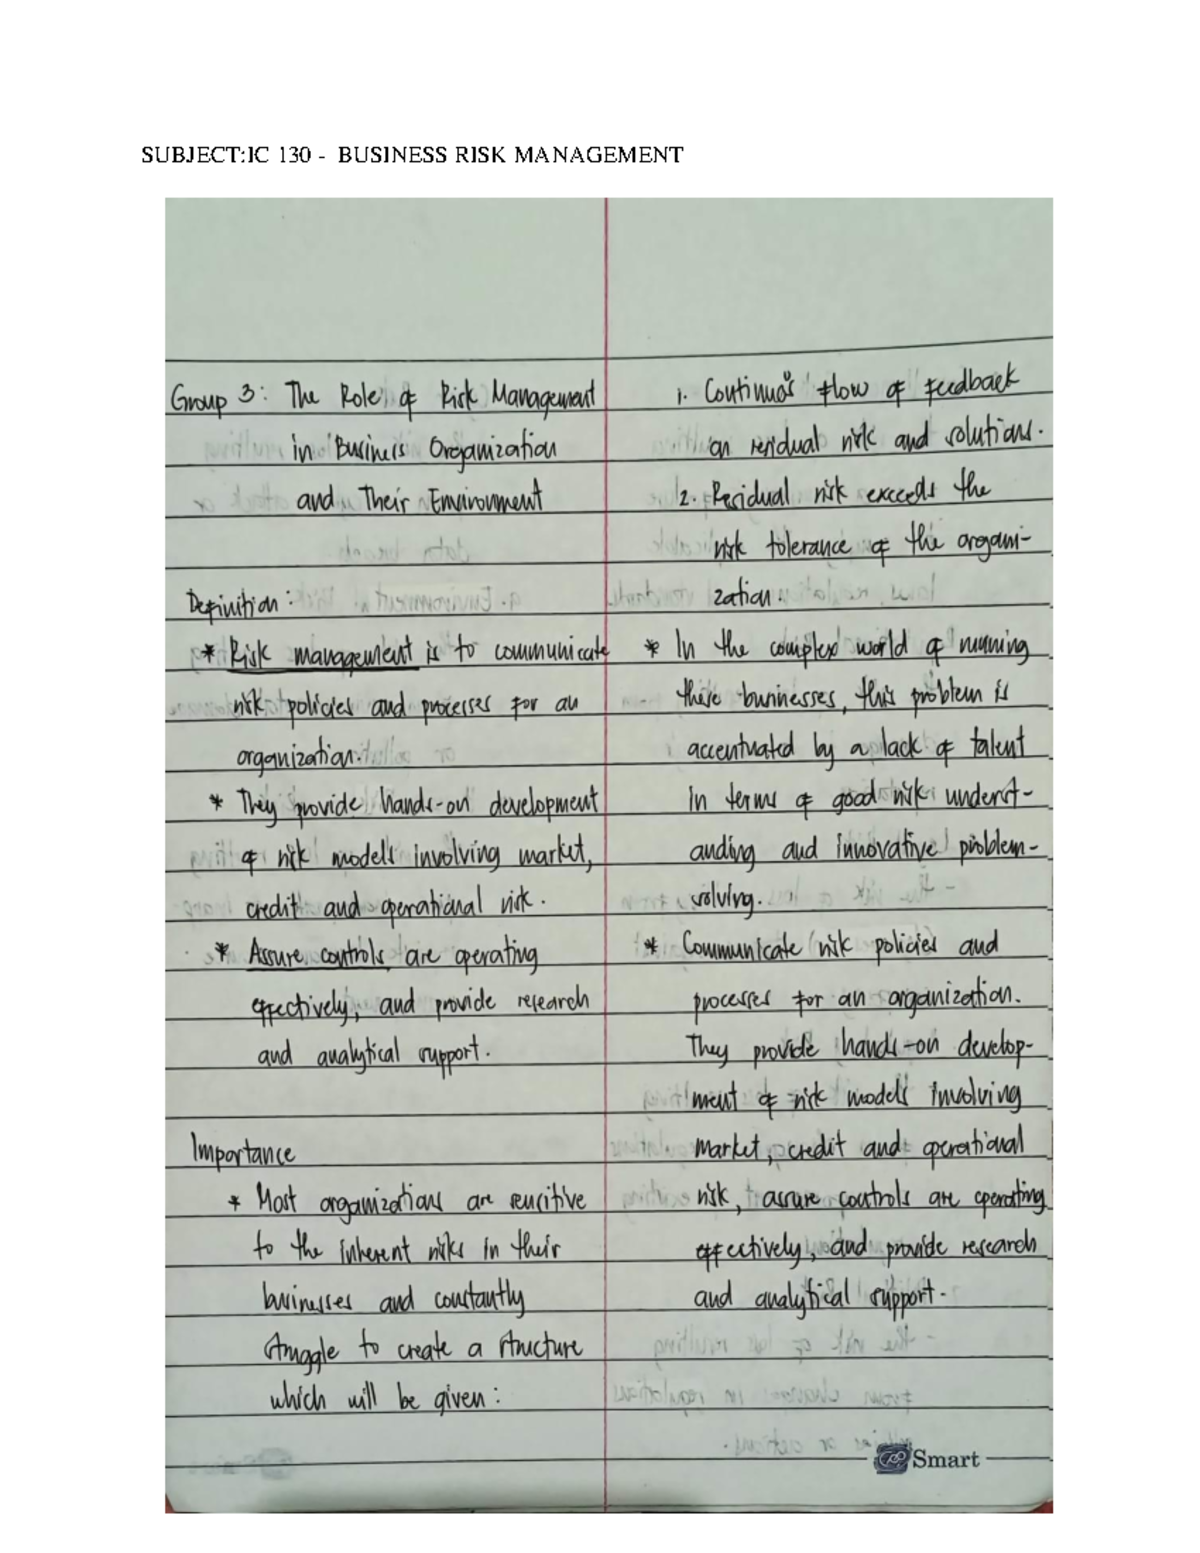 SUBJECT:IC 130 - BUSINESS RISK MANAGEMENT
Group 3: The Role of Risk Management
in Business Organization
and Their Environment
Definition:
* Risk management is to communicate
risk policies and processes for an
organization.
* They provide hands-on development
of risk models involving market,
credit and operational risk.
* Assure controls are operating
effectively, and provide research
and analytical support.
Importance
* Most organizations are sensitive
to the inherent risks in their
businesses and constantly
struggle to create a structure
which will be given:
1. Continuos flow of feedback
on residual risk and solutions.
2. Residual risk exceeds the
risk tolerance of the organi-
zation.
* In the complex world of running
these businesses, this problem is
accentuated by a lack of talent
in terms of good risk underst-
anding and innovative problem-
solving.
* Communicate risk policies and
processes for an organization.
They provide hands-on develop-
ment of risk models involving
market, credit and operational
risk, assure controls are operating
effectively, and provide research
and analytical support.
Smart